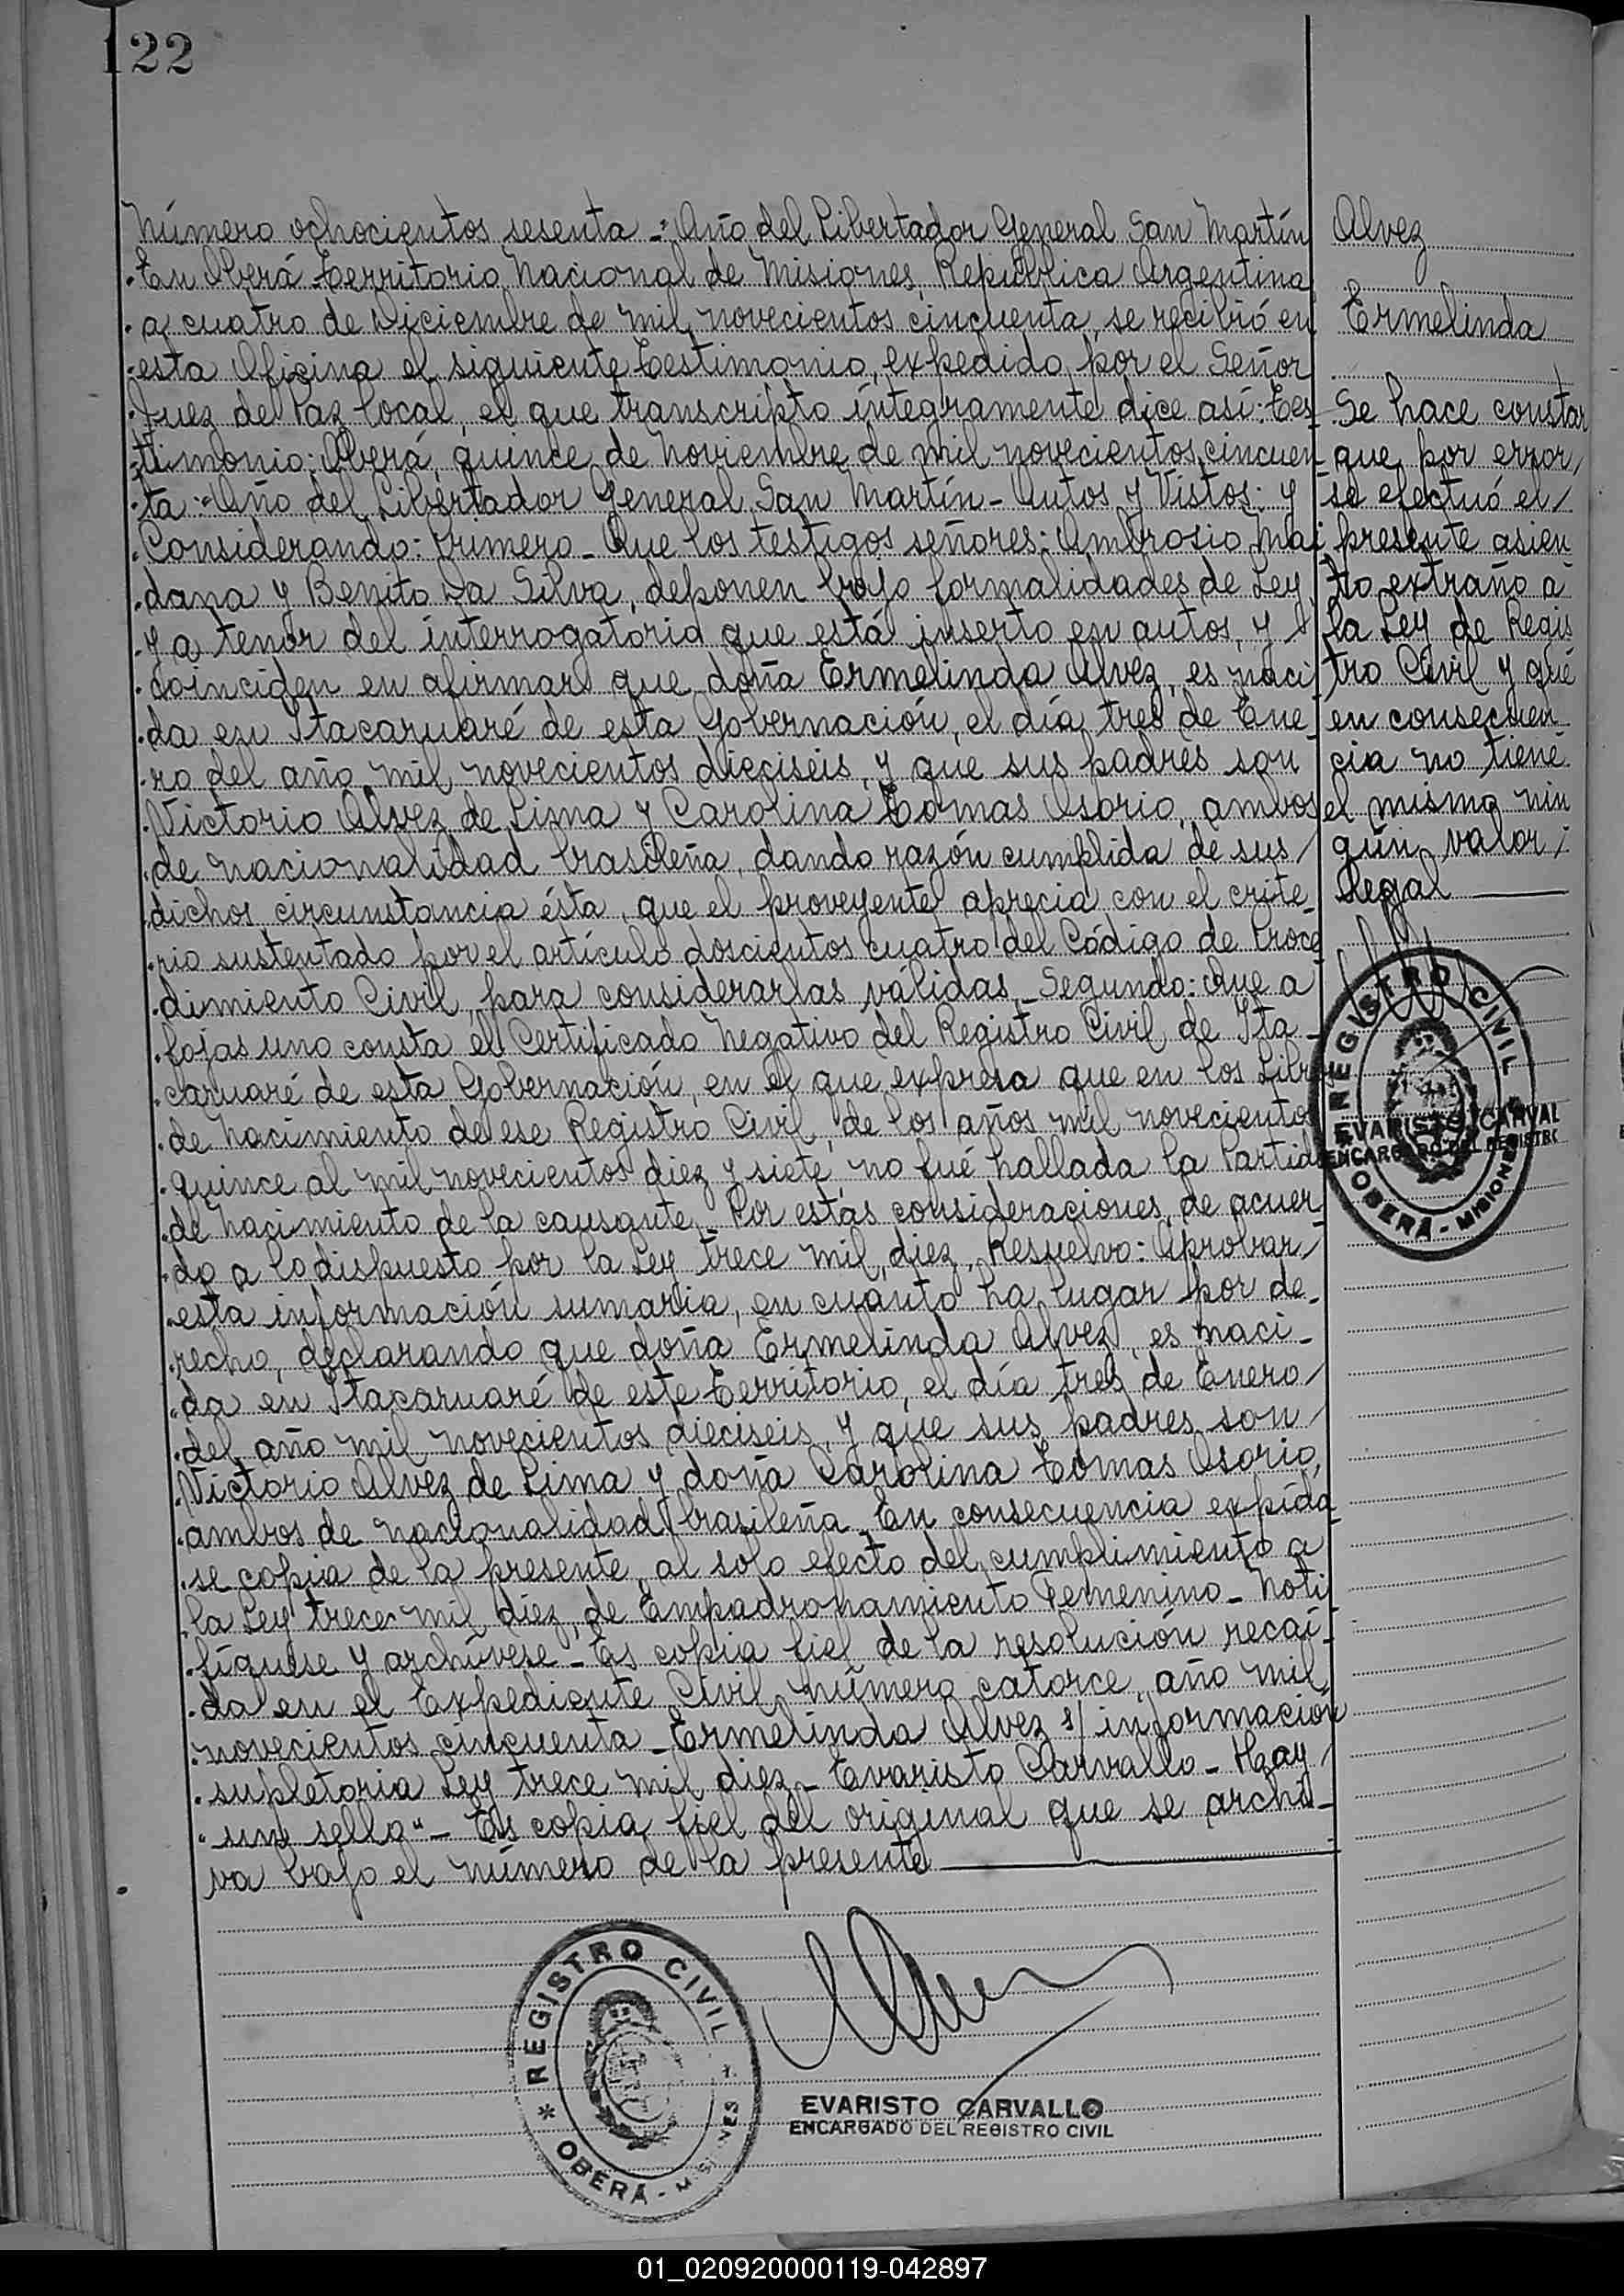 122
Número ochocientos sesenta -"Año del Libertador General San Martín
En Oberá Territorio Nacional de Misiones, República Argentina
a cuatro de Diciembre de mil novecientos cincuenta, se recibió en
esta Oficina el siguiente Testimonio, expedido por el Señor
Juez de Paz local, el que transcripto íntegramente dice así: Tes
timonio: Oberá, quince de Noviembre de mil novecientos cincuen
ta: "Año del Libertador General San Martín - Autos y Vistos: y
Considerando: Primero - Que los testigos señores: Ambrosio Mai
dana y Benito Da Silva, deponen bajo formalidades de Ley
y a tenor del interrogatorio que está inserto en autos, y
coinciden en afirmar que doña Ermelinda Alvez, es naci
da en Itacaruaré de esta Gobernación, el día tres de Ene-
ro del año mil novecientos dieciseis, y que sus padres son
Victorio Alvez de Lima y Carolina Tomas Osorio, ambos
de nacionalidad brasileña, dando razón cumplida de sus /
dichos circunstancia ésta, que el proveyente aprecia con el crite-
rio sustentado por el artículo doscientos cuatro del Código de Proce
dimiento Civil, para considerarlas válidas - Segundo: Que a
fojas uno consta el Certificado Negativo del Registro Civil de Ita-
caruaré de esta Gobernación, en el que expresa que en los Libr
de Nacimiento de ese Registro Civil, de los años mil novecientos
quince al mil novecientos diez y siete, no fué hallada la Partida
de Nacimiento de la causante - Por estas consideraciones, de acuer-
do a lo dispuesto por la Ley trece mil, diez, Resuelvo: Aprobar /
esta información sumaria, en cuanto ha lugar por de-
recho, declarando que doña Ermelinda Alvez, es naci-
da en Itacaruaré de este Territorio, el día tres de Enero /
del año mil novecientos dieciseis, y que sus padres son /
Victorio Alvez de Lima y doña Carolina Tomas Osorio,
ambos de nacionalidad brasileña - En consecuencia expída
se copia de la presente, al solo efecto del cumplimiento a
la Ley trece mil diez, de Empadronamiento Femenino - Noti
fíquese y archívese - Es copia fiel de la resolución recaí-
da en el Expediente Civil número catorce, año mil
novecientos cincuenta - Ermelinda Alvez s/ información
supletoria Ley trece mil diez - Evaristo Carvallo - Hay /
un sello" - Es copia fiel del original que se archi-
va bajo el número de la presente
Alvez
Ermelinda
Se hace constar
que por error /
se efectuó el /
presente asien
to extraño a
la Ley de Regis
tro Civil y que
en consecuen
cia no tiene
el mismo nin
gún valor /
legal
REGISTRO CIVIL
OBERÁ - MISIONES
EVARISTO CARVAL
ENCARGADO DEL REGISTRO
REGISTRO CIVIL
* OBERÁ - MISIONES
EVARISTO CARVALLO
ENCARGADO DEL REGISTRO CIVIL
01_020920000119-042897